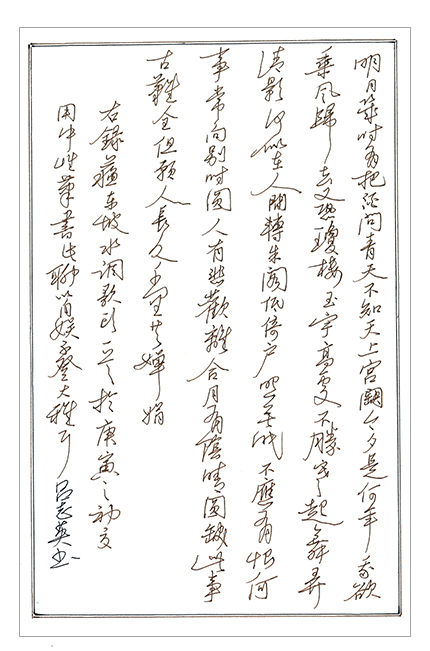 明月幾時有把酒問青天不知天上宮闕今夕是何年我欲
乘風歸去又恐瓊樓玉宇高處不勝寒起舞弄
清影何似在人間轉朱閣低綺戶照無眠不應有恨何
事常向別時圓人有悲歡離合月有陰晴圓缺此事
古難全但願人長久千里共嬋娟
右錄蘇東坡水調歌頭於庚寅之初夏
用中性筆書此聊以自娛不登大雅 呂志英書